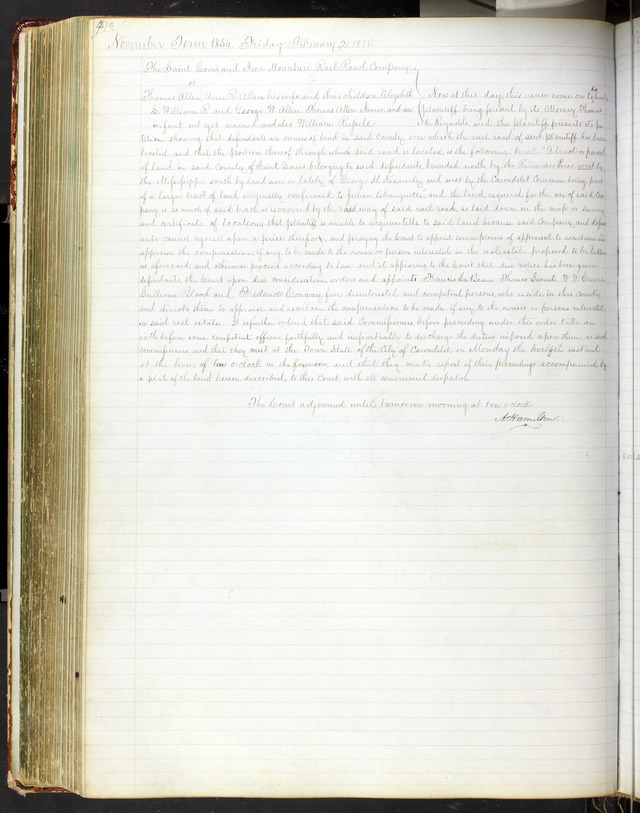 November Term 1854. Friday February 2, 1855
The Saint Louis and Iron Mountain Rail Road Company
vs
Thomas Allen Ann R. Allen his wife and their children Elizabeth
L. William R. and George W. Allen Thomas Allen Junior, and an
infant not yet named and also William Russell
Now at this day this cause come on to be heard
plaintiff being present by its Attorney Thomas
C. Reynolds, and the plaintiff presents its pe-
tition showing that defendants are owners of land in said County, over which the rail road of said plaintiff has been
located, and that the portion thereof through which said road is located is the following, to wit: "A tract or parcel
of land, in said County of Saint Louis, belonging to said defendants, bounded north by the River des Peres, east by
the Mississippi, south by land now or lately of George H. Kennerly and west by the Carondelet Commons being part
of a larger tract of land originally confirmed to Julien and the land required for the use of said Com-
pany is so much of said tract as is covered by the road way of said rail road, as laid down in the map or survey
and certificate of location; that plaintiff is unable to acquire title to said land because said Company and defend-
ants cannot agree upon a price therefor; and praying the Court to appoint commissioners of appraisal to ascertain and
appraise the compensation, if any, to be made to the owner or persons interested in the real estate proposed to be taken
as aforesaid, and otherwise proceed according to law: and it appearing to the Court that due notice has been given
defendants the Court upon due consideration, orders and appoints Francis Thomas W. W.
Sullivan Blood and Frederick Conway five disinterested and competent persons, who reside in this County,
and directs them to appraise and ascertain the compensation to be made, if any, to the owners or persons interested
in said real estate. It is further ordered that said Commissioners before proceeding under this order take an
oath before some competent officer, faithfully and impartially to discharge the duties imposed upon them as such
commissioners, and that they meet at the Town Hall of the City of Carondelet, on Monday the twelfth instant
at the hour of ten o'clock in the forenoon, and that they make report of their proceedings accompanied by
a plat of the land herein described, to this Court, with all convenient despatch
The Court adjourned until tomorrow morning at ten o'clock
A. Hamilton